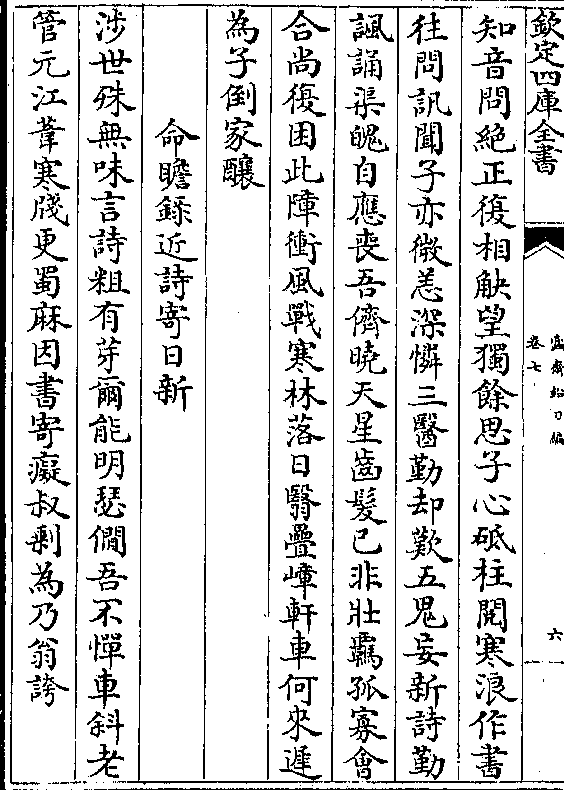 欽定四庫全書
卷七
六
知音問絶正復相觖望獨餘思子心砥柱閲寒浪作書
往問訊聞子亦微恙深憐三醫勤却歎五鬼妄新詩勤
諷誦渠魄自應喪吾儕曉天星齒髮已非壯羈孤寡㑹
合尚復困此障衝風戰寒林落日翳疊嶂軒車何來遲
為子倒家釀
命瞻録近詩寄日新
涉世殊無味言詩粗有芽爾能明瑟僩吾不憚車斜老
管元江葦寒牋更蜀麻因書寄癡叔剩為乃翁誇